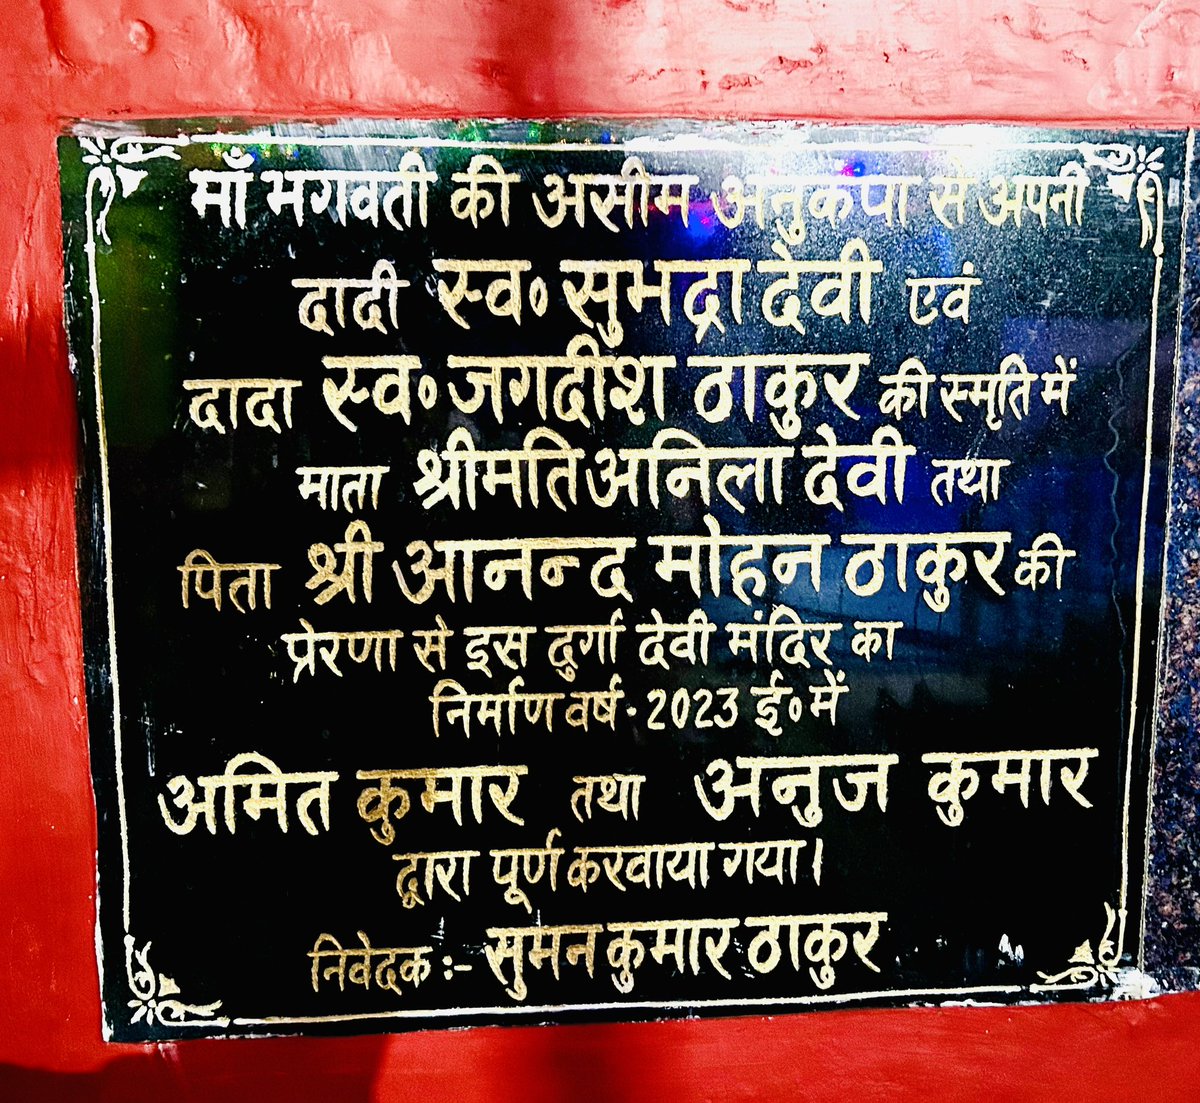 माँ भगवती की असीम अनुकंपा से अपनी
दादी स्व० सुभद्रा देवी एवं
दादा स्व० जगदीश ठाकुर की स्मृति में
माता श्रीमति अनिला देवी तथा
पिता श्री आनन्द मोहन ठाकुर की
प्रेरणा से इस दुर्गा देवी मंदिर का
निर्माण वर्ष · 2023 ई० में
अमित कुमार तथा अनुज कुमार
द्वारा पूर्ण करवाया गया।
निवेदक :- सुमन कुमार ठाकुर